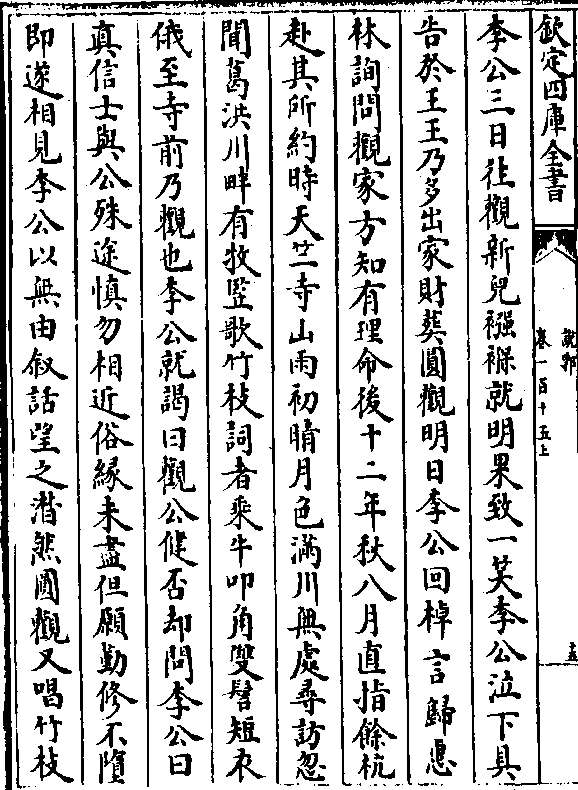 欽定四庫全書
說郛
卷一百十五上
李公三日往觀新兒襁褓就明果致一笑李公泣下具
告於王王乃多出家財葬圓觀明日李公回棹言歸惠
林詢問觀家方知有理命後十二年秋八月直指餘杭
赴其所約時天竺寺山雨初晴月色滿川無處尋訪忽
聞葛洪川畔有牧豎歌竹枝詞者乘牛叩角雙髻短衣
俄至寺前乃觀也李公就謁曰觀公健否却問李公曰
真信士與公殊途慎勿相近俗緣未盡但願勤修不墮
即遂相見李公以無由叙話望之潸然圓觀又唱竹枝